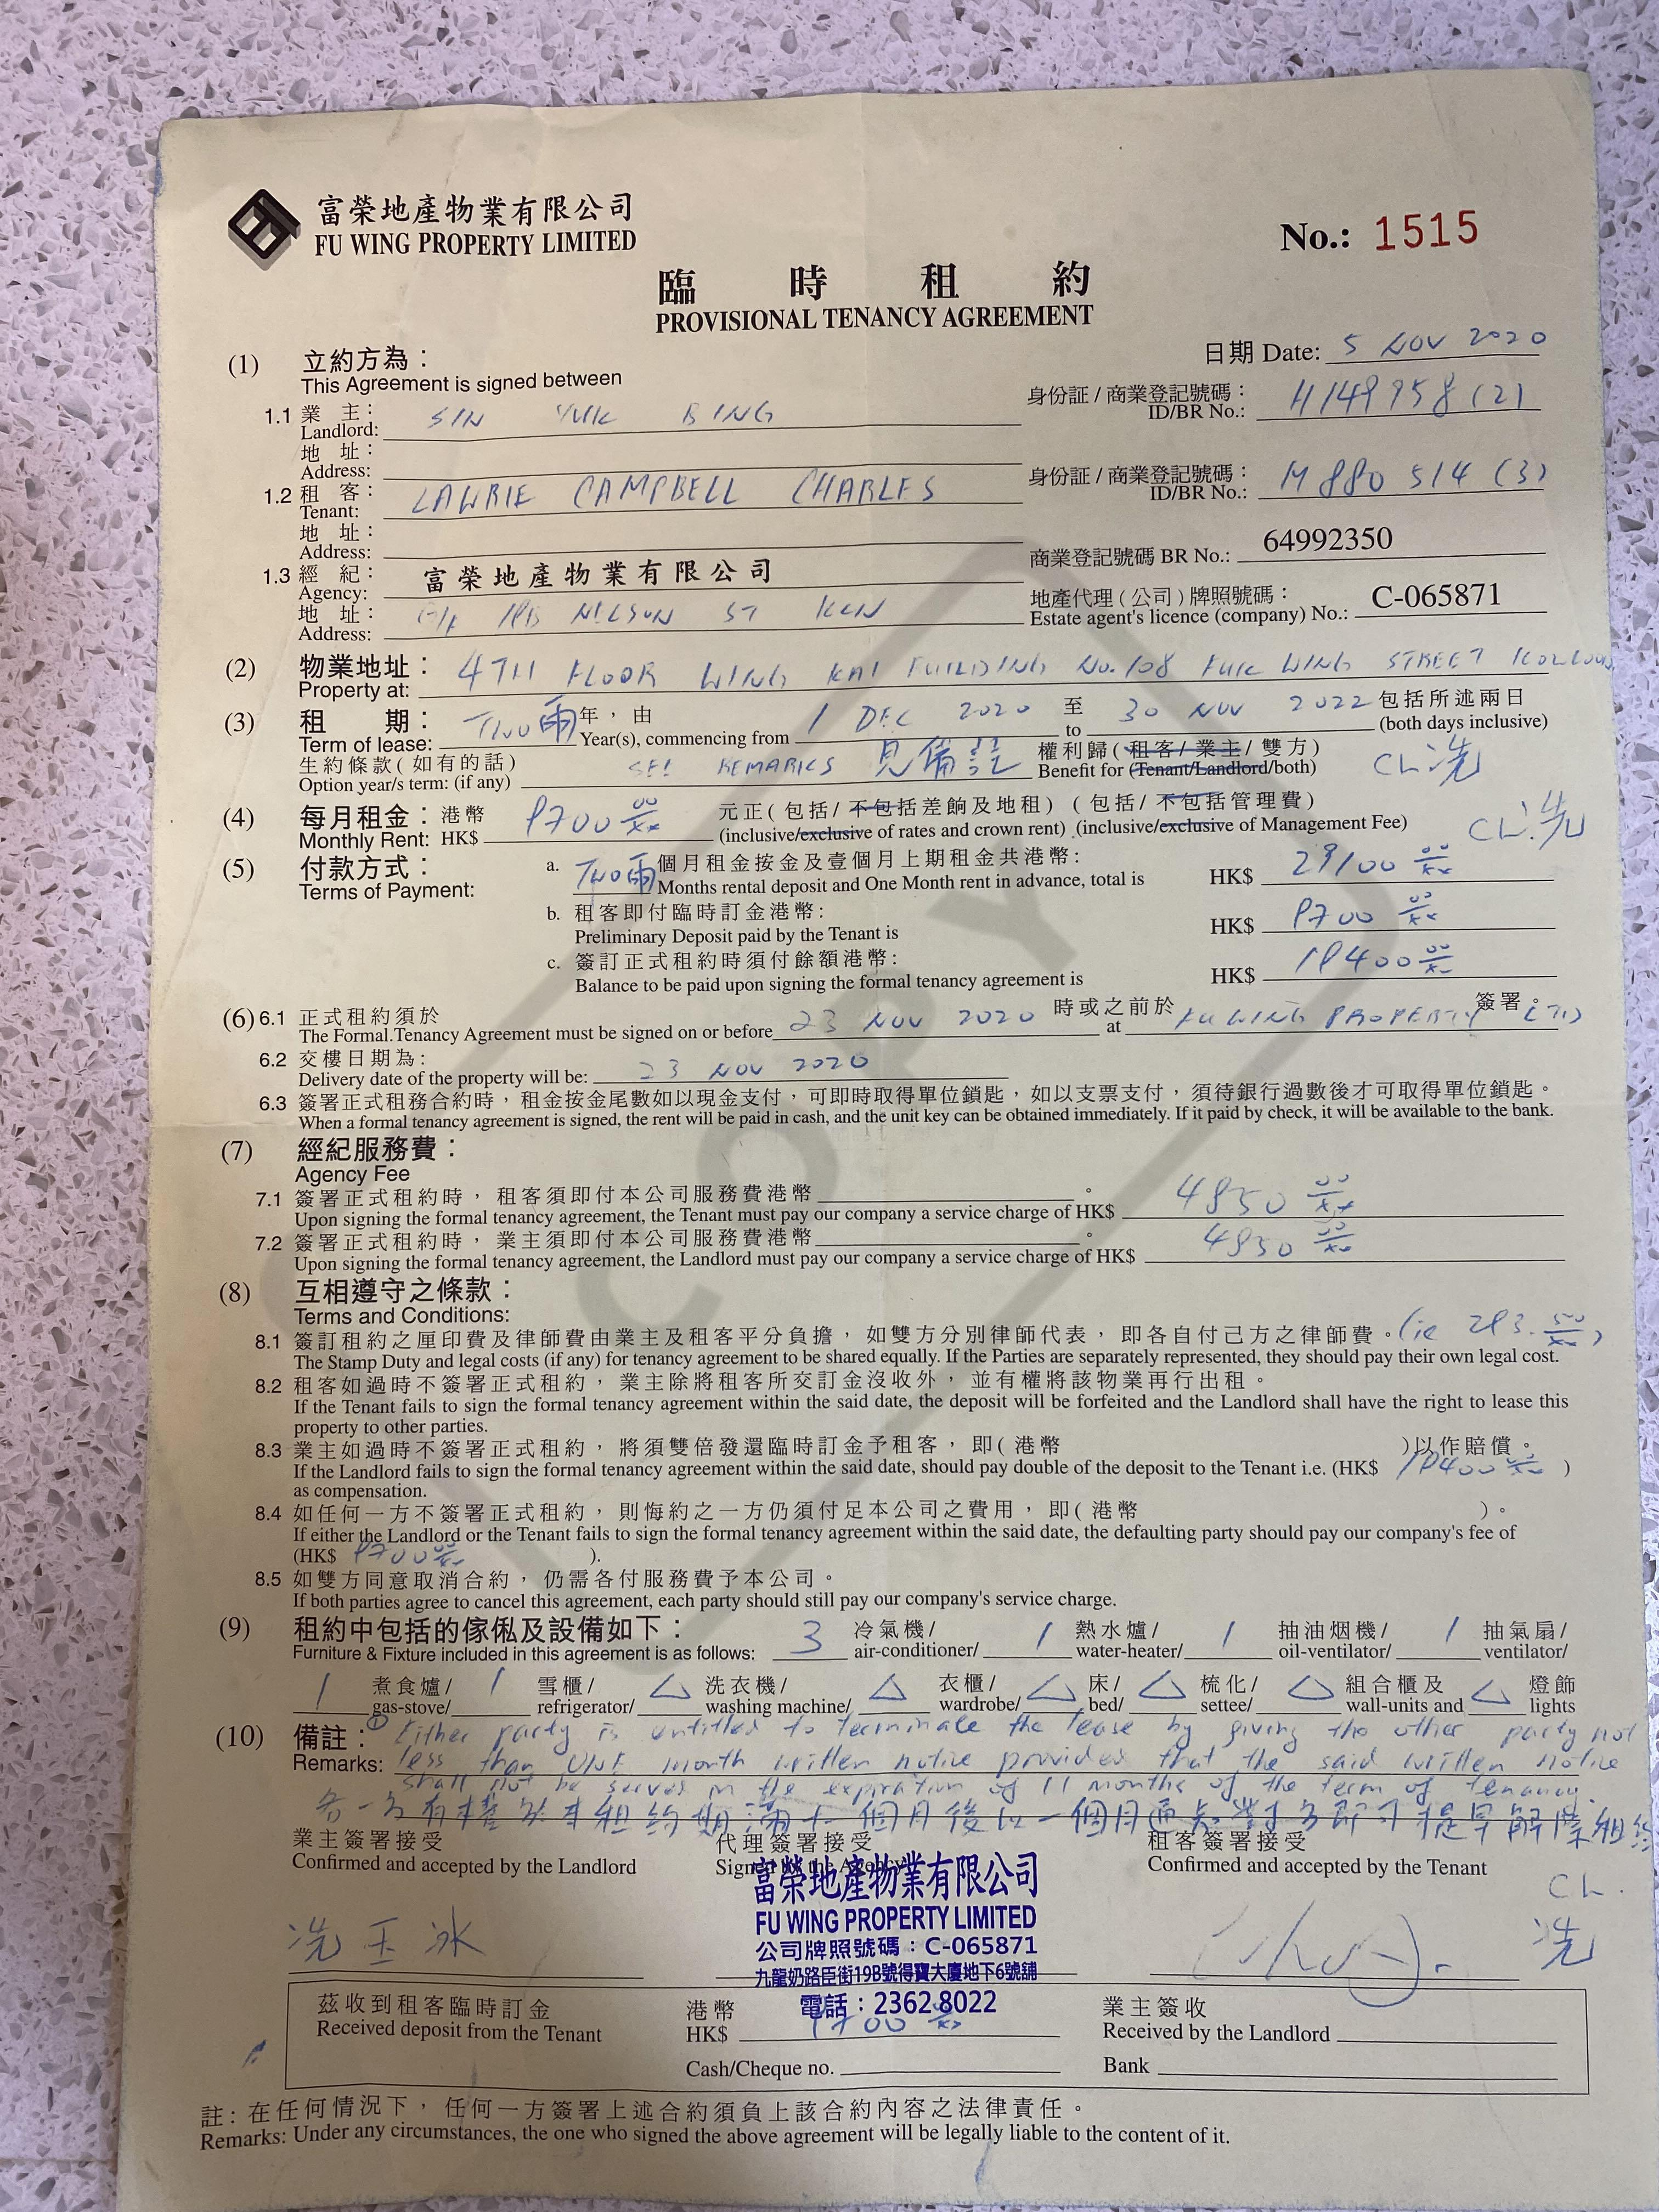 富榮地產物業有限公司
FU WING PROPERTY LIMITED
No.: 1515
臨時租約
PROVISIONAL TENANCY AGREEMENT
日期 Date: 5 NOV 2020
(1) 立約方為：
This Agreement is signed between
1.1 業主： SIN YUK BING
Landlord:
身份証 / 商業登記號碼：
ID/BR No.: H149958(2)
地址：
Address:
1.2 租客： LAWRIE CAMPBELL CHARLES
Tenant:
身份証 / 商業登記號碼：
ID/BR No.: M880514(3)
地址：
Address:
商業登記號碼 BR No.: 64992350
1.3 經紀： 富榮地產物業有限公司
Agency:
地產代理（公司）牌照號碼：
Estate agent's licence (company) No.: C-065871
地址： NELSON ST KLN
Address:
(2) 物業地址： 4TH FLOOR WING KAI BUILDING No.108 FUK WING STREET KOWLOON
Property at:
(3) 租期： TWO 兩 年，由 1 DEC 2020 至 30 NOV 2022 包括所述兩日
Term of lease: Year(s), commencing from to (both days inclusive)
生約條款（如有的話） SEE REMARKS 見備註 權利歸（租客/業主/雙方）
Option year's term: (if any) Benefit for (Tenant/Landlord/both) CL 冼
(4) 每月租金：港幣 9700 元正（包括/不包括差餉及地租）（包括/不包括管理費）
Monthly Rent: HK$ (inclusive/exclusive of rates and crown rent) (inclusive/exclusive of Management Fee) CL. 冼
(5) 付款方式：
Terms of Payment:
a. TWO 兩 個月租金按金及壹個月上期租金共港幣：
Months rental deposit and One Month rent in advance, total is HK$ 29100
b. 租客即付臨時訂金港幣：
Preliminary Deposit paid by the Tenant is HK$ 9700
c. 簽訂正式租約時須付餘額港幣：
Balance to be paid upon signing the formal tenancy agreement is HK$ 19400
(6) 6.1 正式租約須於 時或之前於 簽署。
The Formal.Tenancy Agreement must be signed on or before 23 NOV 2020 at FU WING PROPERTY LTD
6.2 交樓日期為：
Delivery date of the property will be: 23 NOV 2020
6.3 簽署正式租務合約時，租金按金尾數如以現金支付，可即時取得單位鎖匙，如以支票支付，須待銀行過數後才可取得單位鎖匙。
When a formal tenancy agreement is signed, the rent will be paid in cash, and the unit key can be obtained immediately. If it paid by check, it will be available to the bank.
(7) 經紀服務費：
Agency Fee
7.1 簽署正式租約時，租客須即付本公司服務費港幣 。
Upon signing the formal tenancy agreement, the Tenant must pay our company a service charge of HK$ 4850
7.2 簽署正式租約時，業主須即付本公司服務費港幣 。
Upon signing the formal tenancy agreement, the Landlord must pay our company a service charge of HK$ 4850
(8) 互相遵守之條款：
Terms and Conditions:
8.1 簽訂租約之厘印費及律師費由業主及租客平分負擔，如雙方分別律師代表，即各自付己方之律師費。(ie 293.50)
The Stamp Duty and legal costs (if any) for tenancy agreement to be shared equally. If the Parties are separately represented, they should pay their own legal cost.
8.2 租客如過時不簽署正式租約，業主除將租客所交訂金沒收外，並有權將該物業再行出租。
If the Tenant fails to sign the formal tenancy agreement within the said date, the deposit will be forfeited and the Landlord shall have the right to lease this
property to other parties.
8.3 業主如過時不簽署正式租約，將須雙倍發還臨時訂金予租客，即（港幣 ）以作賠償。
If the Landlord fails to sign the formal tenancy agreement within the said date, should pay double of the deposit to the Tenant i.e. (HK$ 19400 )
as compensation.
8.4 如任何一方不簽署正式租約，則悔約之一方仍須付足本公司之費用，即（港幣 ）。
If either the Landlord or the Tenant fails to sign the formal tenancy agreement within the said date, the defaulting party should pay our company's fee of
(HK$ 9700 ).
8.5 如雙方同意取消合約，仍需各付服務費予本公司。
If both parties agree to cancel this agreement, each party should still pay our company's service charge.
(9) 租約中包括的傢俬及設備如下： 3 冷氣機/ 1 熱水爐/ 1 抽油烟機/ 1 抽氣扇/
Furniture & Fixture included in this agreement is as follows: air-conditioner/ water-heater/ oil-ventilator/ ventilator/
1 煮食爐/ 1 雪櫃/ 洗衣機/ 衣櫃/ 床/ 梳化/ 組合櫃及 燈飾
gas-stove/ refrigerator/ washing machine/ wardrobe/ bed/ settee/ wall-units and lights
(10) 備註： ① Either party is entitled to terminate the lease by giving the other party not
Remarks: less than ONE month written notice provided that the said written notice
shall not be served in the expiration of 11 months of the term of tenancy.
各一方有權於本租約期滿十一個月後以一個月通知對方即可提早解除租約
業主簽署接受
Confirmed and accepted by the Landlord
代理簽署接受
Signed by the Agency
租客簽署接受
Confirmed and accepted by the Tenant
CL.
冼
冼玉冰
富榮地產物業有限公司
FU WING PROPERTY LIMITED
公司牌照號碼：C-065871
九龍奶路臣街19B號得寶大廈地下6號舖
電話：2362 8022
茲收到租客臨時訂金 港幣 業主簽收
Received deposit from the Tenant HK$ 9700 Received by the Landlord
Cash/Cheque no. Bank
註：在任何情況下，任何一方簽署上述合約須負上該合約內容之法律責任。
Remarks: Under any circumstances, the one who signed the above agreement will be legally liable to the content of it.
COPY